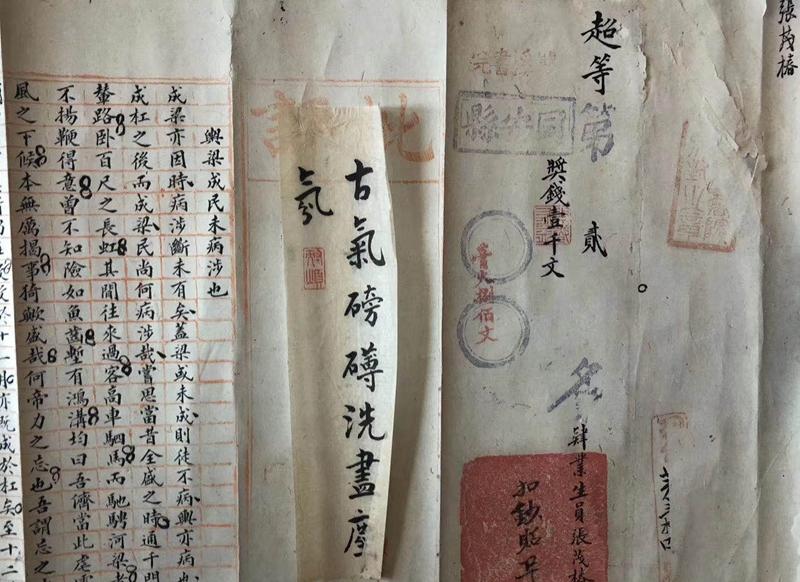 張茂椿
超等第貳名
同安縣
獎錢壹千文
捌佰文
肄業生員張茂椿
批評
古氣磅礡洗盡塵
氛
輿梁成民未病涉也
成梁亦因時病涉斷未有矣蓋梁或未成則徒不病輿亦病也
成杠之後而成梁民尚何病涉哉嘗思當昔全盛之時通千門
螯路卧百尺之長虹其間往來過客高車駟馬而馳騁河梁者
不揚鞭得意曾不知險如魚齒塹有鴻溝均曰吾儕當此處
風之下候本無厲揭事猗歟盛哉何帝力之忘也吾謂忘之
於十一月亦既成於杠矣至十二